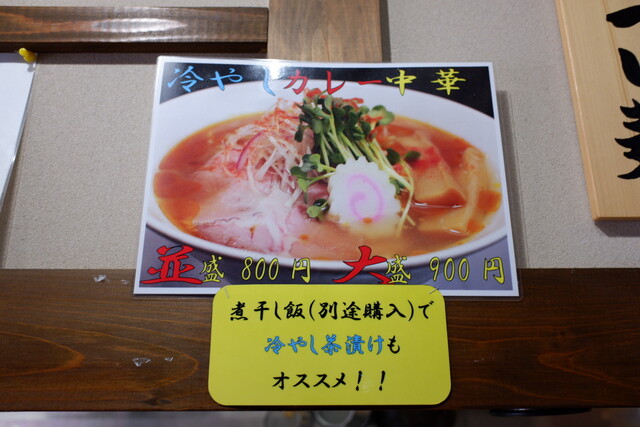 冷やしカレー中華
並盛 800 円 大盛 900 円
煮干し飯(別途購入)で
冷やし茶漬けも
オススメ！！